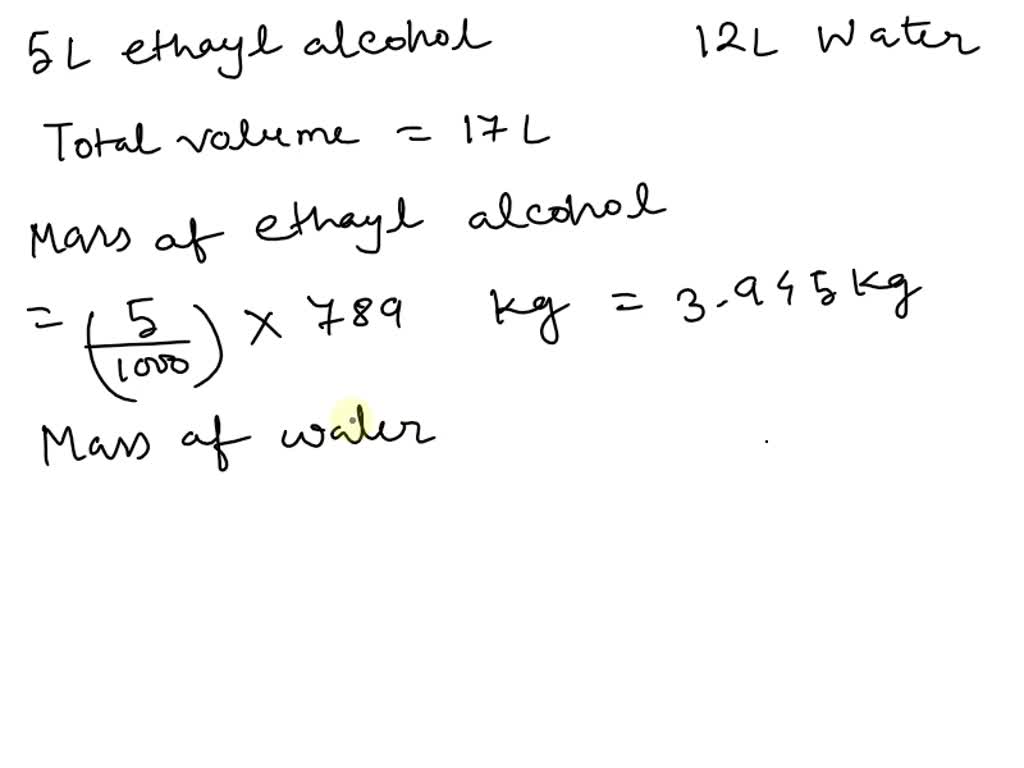 5L ethayl alcohol 12L Water
Total volume = 17L
Mass of ethayl alcohol
= (5/1000) × 789 kg = 3.945 kg
Mass of water